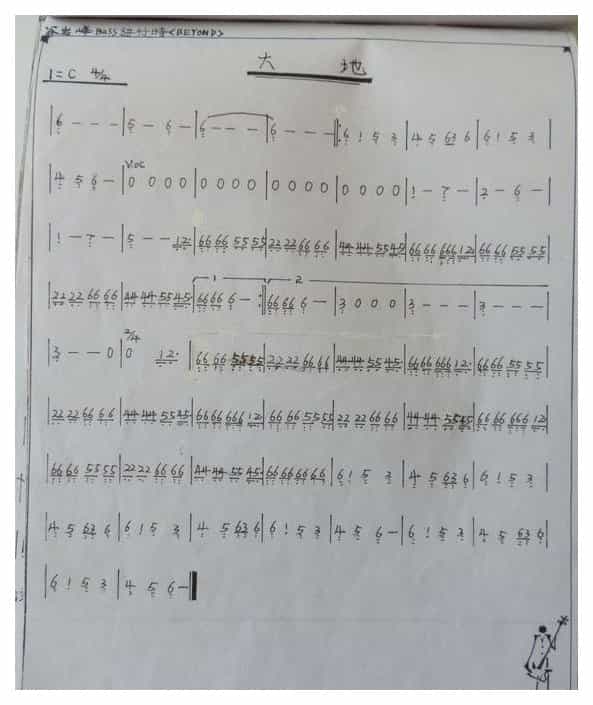 Bass <BEYOND>
大 地
1=C 4/4
|6 - - -|5 - 6 -|6 - - -|6 - - -‖:6 1 5 3|4 5 63 6|6 1 5 3|
|4 5 6 -|VOC 0 0 0 0|0 0 0 0|0 0 0 0|0 0 0 0|1 - 7 -|2 - 6 -|
|1 - 7 -|5 - - 12|66 66 55 55|22 22 66 66|44 44 55 45|66 66 666 12|66 66 55 55|
|22 22 66 66|44 44 55 45|1 66 66 6 - :‖2 66 66 6 -|3 0 0 0|3 - - -|3 - - -|
|3 - - 0|2/4 0 12|66 66 55 55|22 22 66 66|44 44 55 45|66 66 666 12|66 66 55 55|
|22 22 66 66|44 44 55 45|66 66 666 12|66 66 55 55|22 22 66 66|44 44 55 45|66 66 666 12|
|66 66 55 55|22 22 66 66|44 44 55 45|66 66 66 66|6 1 5 3|4 5 63 6|6 1 5 3|
|4 5 63 6|6 1 5 3|4 5 63 6|6 1 5 3|4 5 6 -|6 1 5 3|4 5 63 6|
|6 1 5 3|4 5 6 -‖